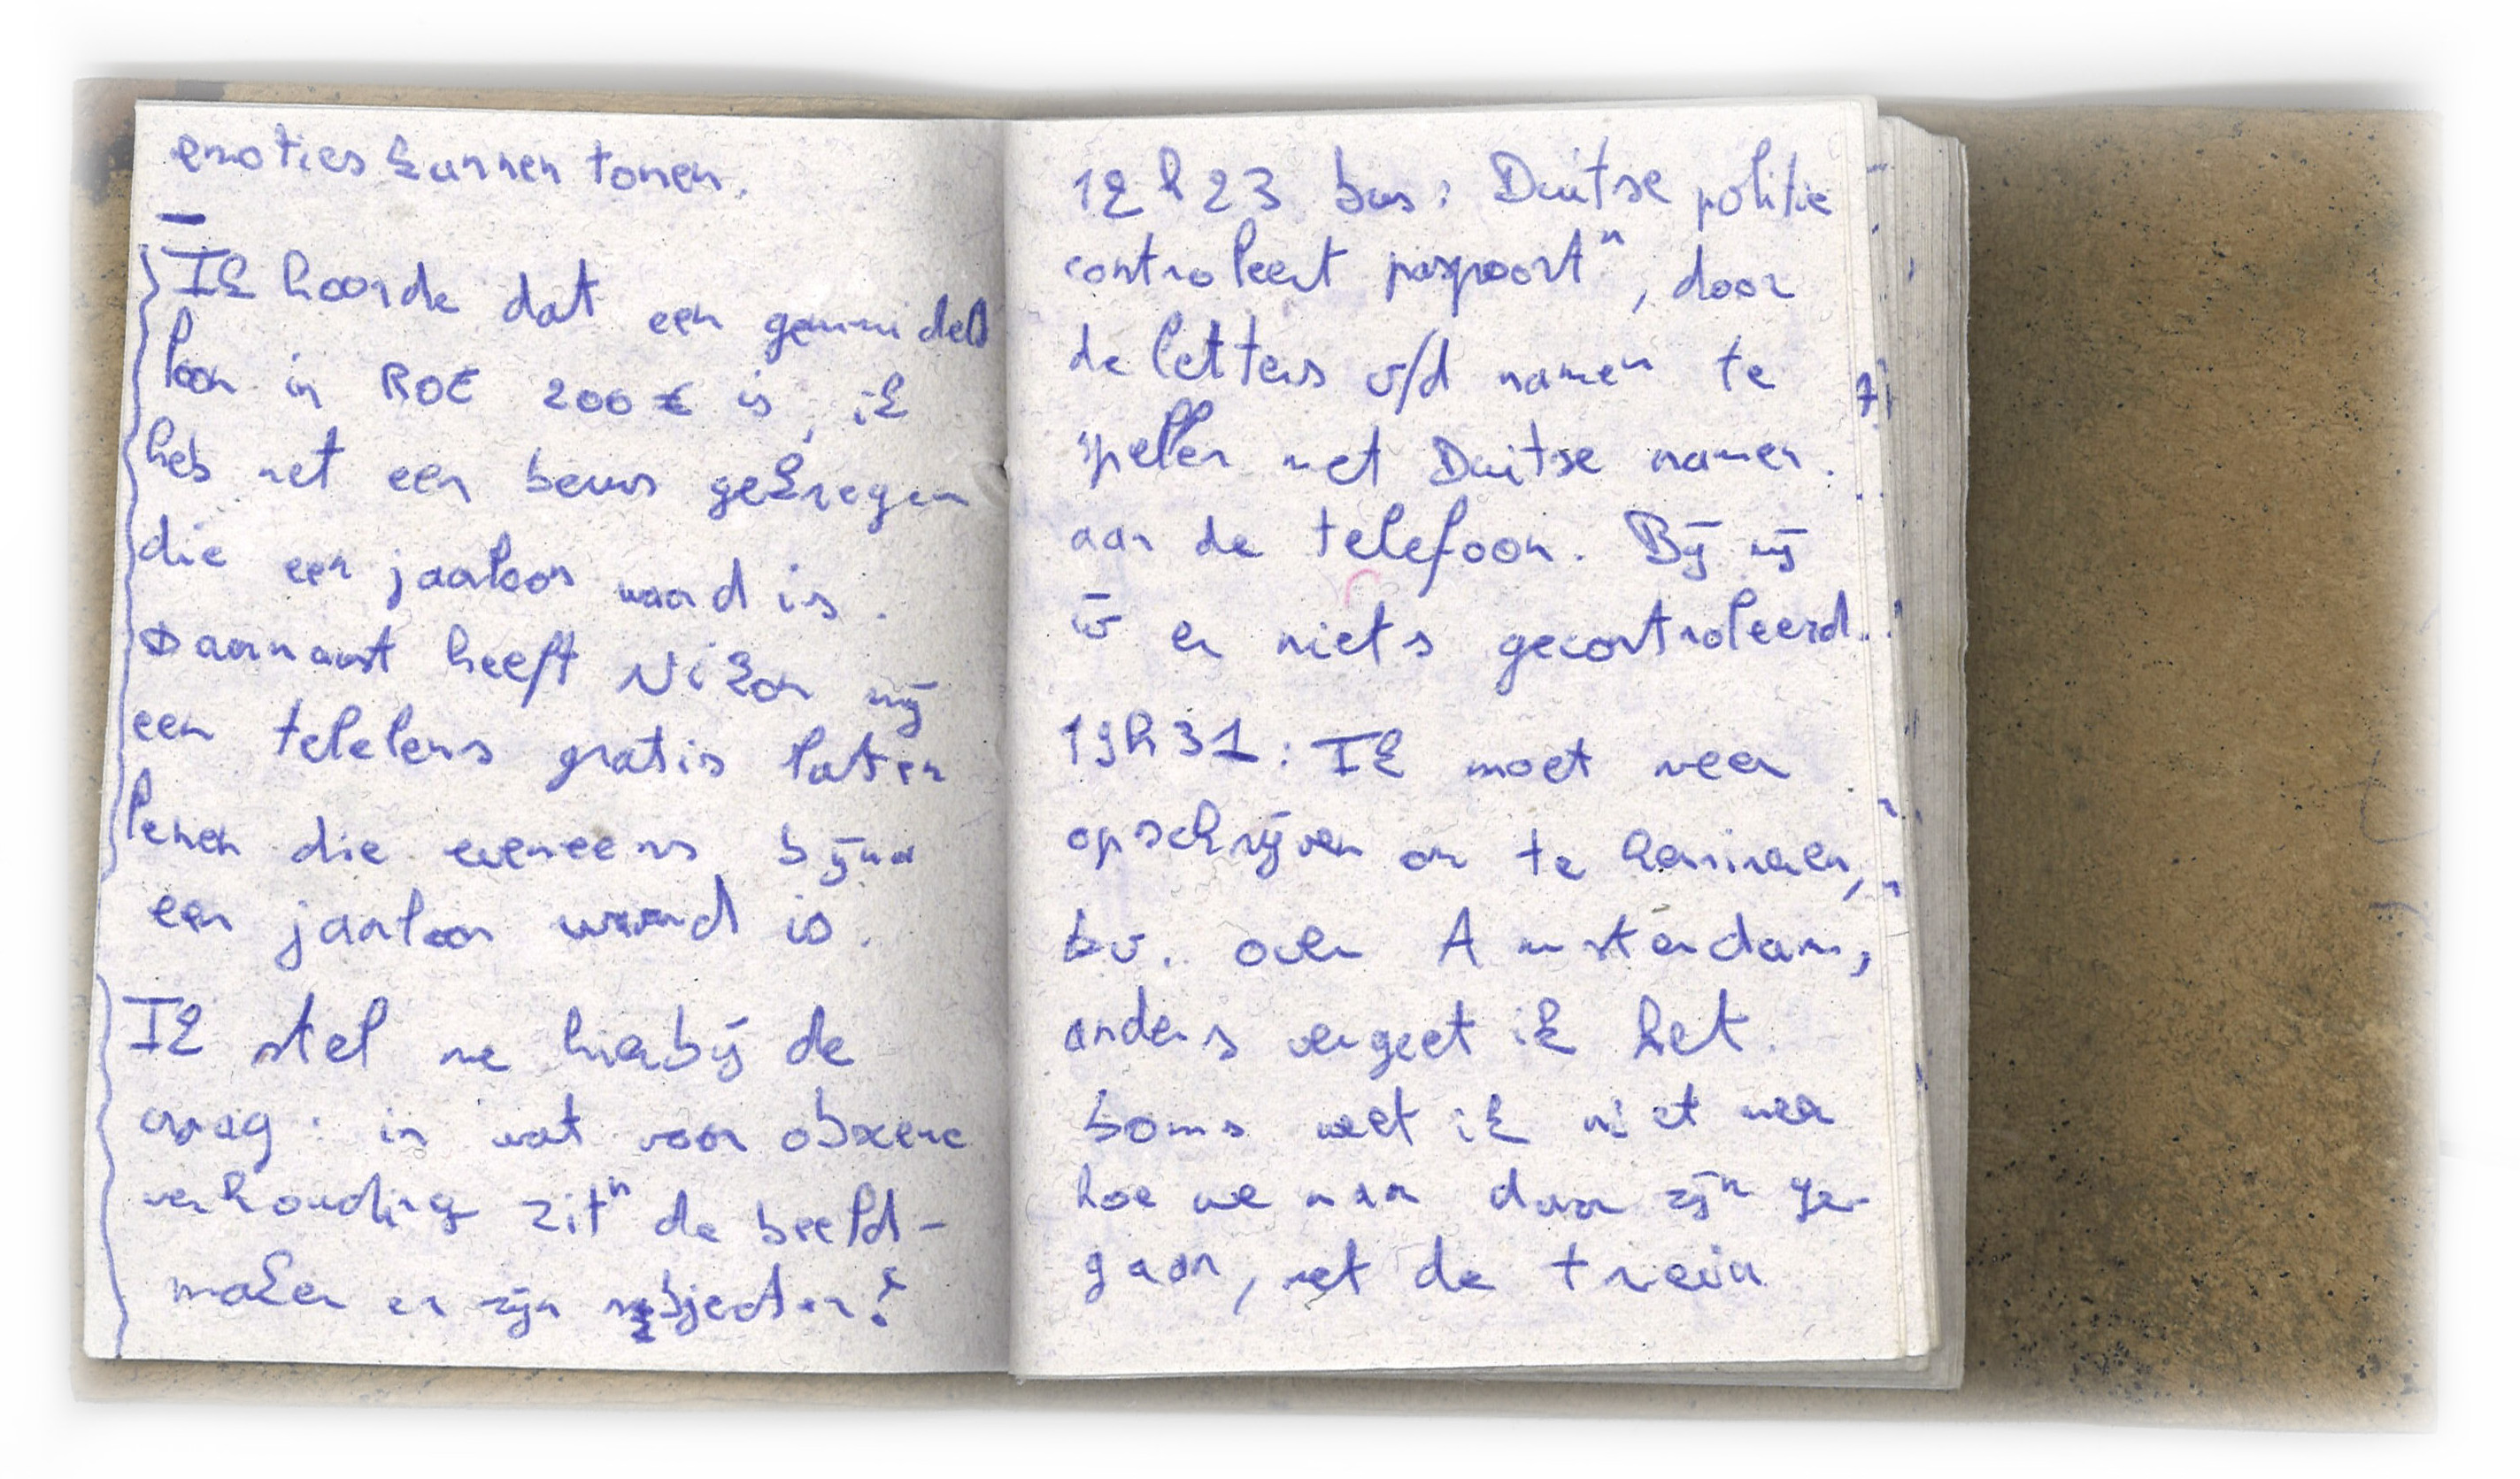 emoties kunnen tonen.
Ik hoorde dat een gemiddeld
loon in ROE 200 € is, ik
heb net een beurs gekregen
die een jaarloon waard is.
Daarnaast heeft Nikon mij
een telelens gratis laten
lenen die eveneens bijna
een jaarloon waard is.
Ik stel me hierbij de
vraag: in wat voor obscene
verhouding zitⁿ de beeld-
maker en zijn subjecten?
12h23 bus: Duitse politie
controleert paspoortⁿ, door
de letters v/d namen te
spellen met Duitse namen.
aan de telefoon. Bij mij
w̄ er niets gecontroleerd.
19h31: Ik moet meer
opschrijven om te herinneren,
bv. over Amsterdam,
anders vergeet ik het.
soms weet ik niet meer
hoe we naar daar zijn ge-
gaan, met de trein